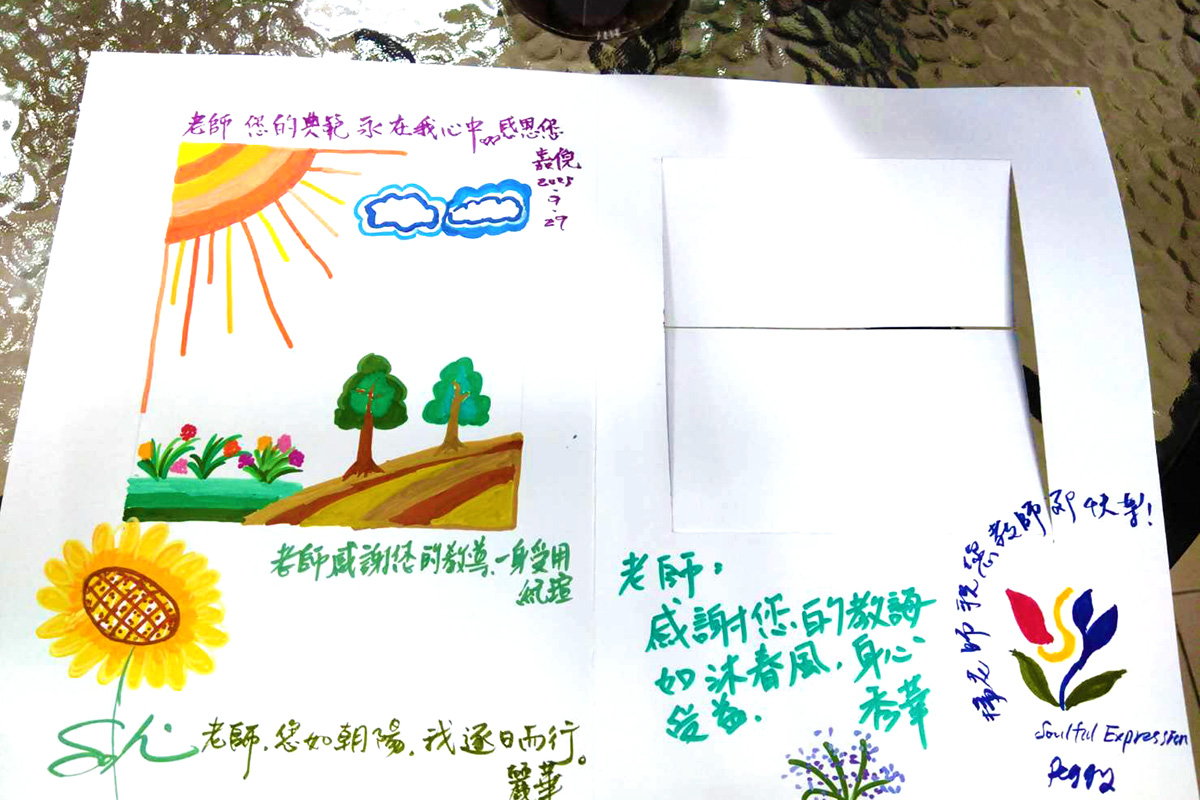 老師 您的典範 永在我心中 感恩您
嘉倪
2025
9
29
老師感謝您的教導、一身受用
老師，您如朝陽，我逐日而行。
麗華
老師：
感謝您的教誨
如沐春風，身心
受益.
秀華
老師祝您教師節快樂!
Soulful Expression
Peggy